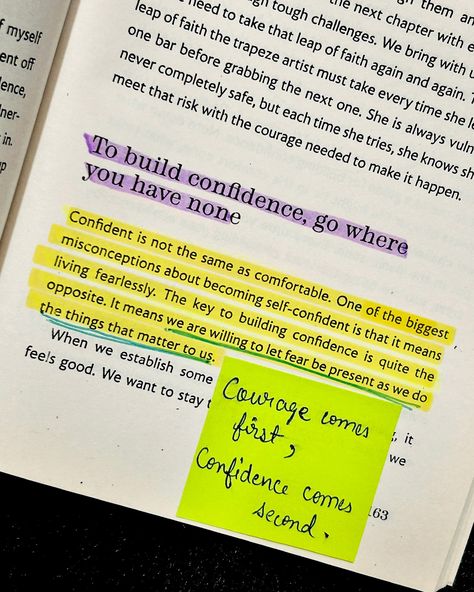 f myself
ent off
ence,
lner-
in.
up
them an
the next chapter with e
gh tough challenges. We bring with u
need to take that leap of faith again and again. T
leap of faith the trapeze artist must take every time she le
one bar before grabbing the next one. She is always vuln
never completely safe, but each time she tries, she knows sh
meet that risk with the courage needed to make it happen.
To build confidence, go where
you have none
Confident is not the same as comfortable. One of the biggest
misconceptions about becoming self-confident is that it means
living fearlessly. The key to building confidence is quite the
opposite. It means we are willing to let fear be present as we do
the things that matter to us.
When we establish some
, it
feels good. We want to stay
we
Courage comes
first,
Confidence comes
second.
163